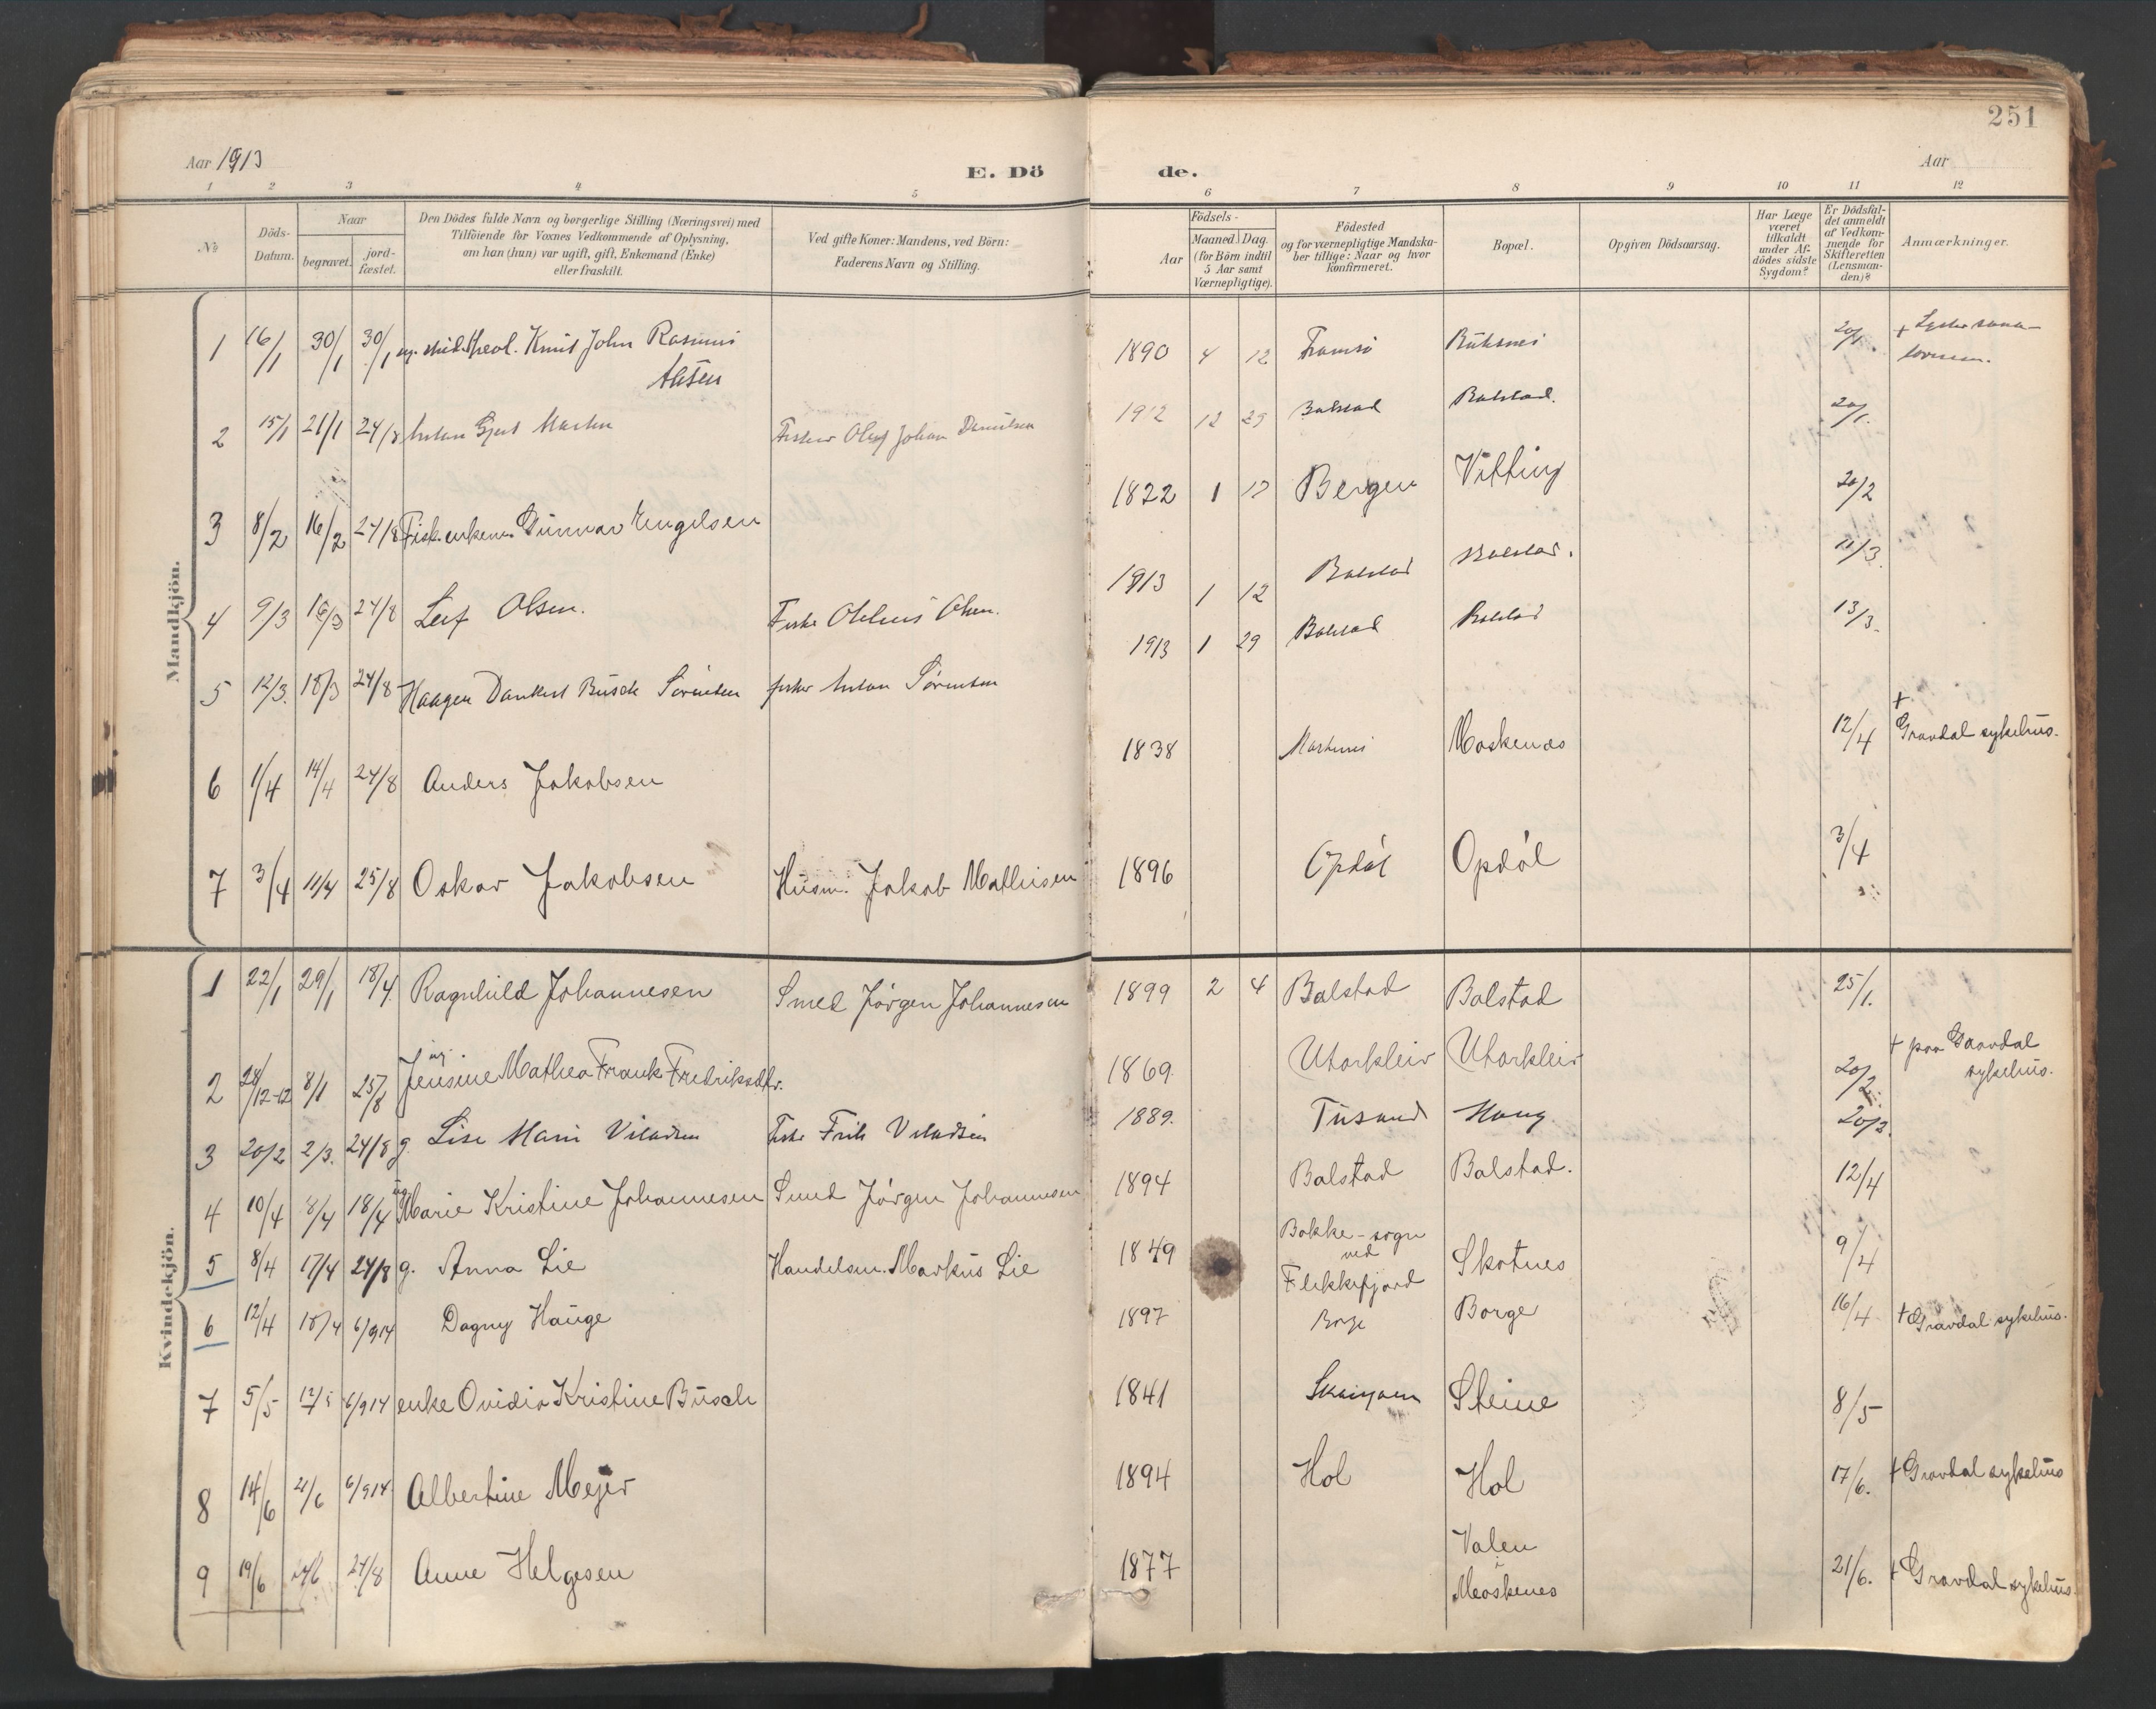 251
Aar 1913
E. Dö
de.
Aar
1 2 3 4 5 6 7 8 9 10 11 12
№
Döds-
Datum.
Naar
begravet.
jord-
fæstet.
Den Dödes fulde Navn og borgerlige Stilling (Næringsvei) med
Tilföiende for Voxnes Vedkommende af Oplysning,
om han (hun) var ugift, gift, Enkemand (Enke)
eller fraskilt.
Ved gifte Koner: Mandens, ved Börn:
Faderens Navn og Stilling.
Födsels-
Aar
Maaned. Dag.
(for Börn indtil
5 Aar samt
Værnepligtige).
Födested
og for værnepligtige Mandska-
ber tillige: Naar og hvor
konfirmeret.
Bopæl.
Opgiven Dödsaarsag.
Har Læge
været
tilkaldt
under Af-
dödes sidste
Sygdom?
Er Dödsfal-
det anmeldt
af Vedkom-
mende for
Skifteretten
(Lensman-
den)?
Anmærkninger.
Mandkjön.
1 16/1 30/1 30/1 ug. stud. theol. Knut John Rasmus 1890 4 12 Tromsö Buksnes 20/1.
2 15/1 21/1 24/8 Anton Gjert Martin Fisker Oluf Johan Danielsen 1912 12 29 Balstad Balstad. 20/1.
3 8/2 16/2 24/8 Fisk. enkem. Gunnar Engelsen 1822 1 17 Bergen Vitting 20/2
4 9/3 16/3 24/8 Leif Olsen. Fisker Olsen. 1913 1 12 Balstad Balstad. 11/3.
5 12/3. 18/3 24/8 Haagen Dankert Busch Sörensen fisker Anton Sörensen 1913 1 29 Balstad Balstad 13/3.
6 1/4 14/4 24/8 Anders Jakobsen 1838 Moskenes 12/4 † Gravdal sykehus.
7 3/4 11/4 25/8 Oskar Jakobsen Husm. Jakob Mathisen 1896 Opdöl Opdöl 3/4
Kvindekjön.
1 22/1 29/1 18/4. Ragnhild Johannesen Smed Jörgen Johannesen 1899 2 4 Balstad Balstad 25/1.
ug.
2 28/12-12 8/1 25/8 Jensine Mathea Frank Fredriksdtr. 1869. Utakleiv Utakleiv 20/2. † paa Gravdal
sykehus.
3 20/2 2/3. 24/8 g. Lise Marie Viladsen Fisk. Viladsen 1889. Haug 20/2.
4 10/4 8/4 18/4 ug. Marie Kristine Johannesen Smed Jörgen Johannesen 1894 Balstad Balstad. 12/4
5 8/4 17/4 24/8 g. Anna Lie Handelsm. Markus Lie 1849 Bakke-sogn
ved
Flekkefjord Skotnes 9/4
6 12/4 18/4 6/914 Dagny Hauge 1897 Borge Borge 16/4 † Gravdal sykehus.
7 5/5 12/5 6/914 enke Ovidia Kristine Busch 1841 Steine 8/5
8 14/6 21/6 6/914 Albertine Mejer 1894 Hol Hol 17/6. † Gravdal sykehus
9 19/6 24/6 24/8 Anne Helgesen 1877 Valen
i
Moskenes 21/6. † Gravdal sykehus.